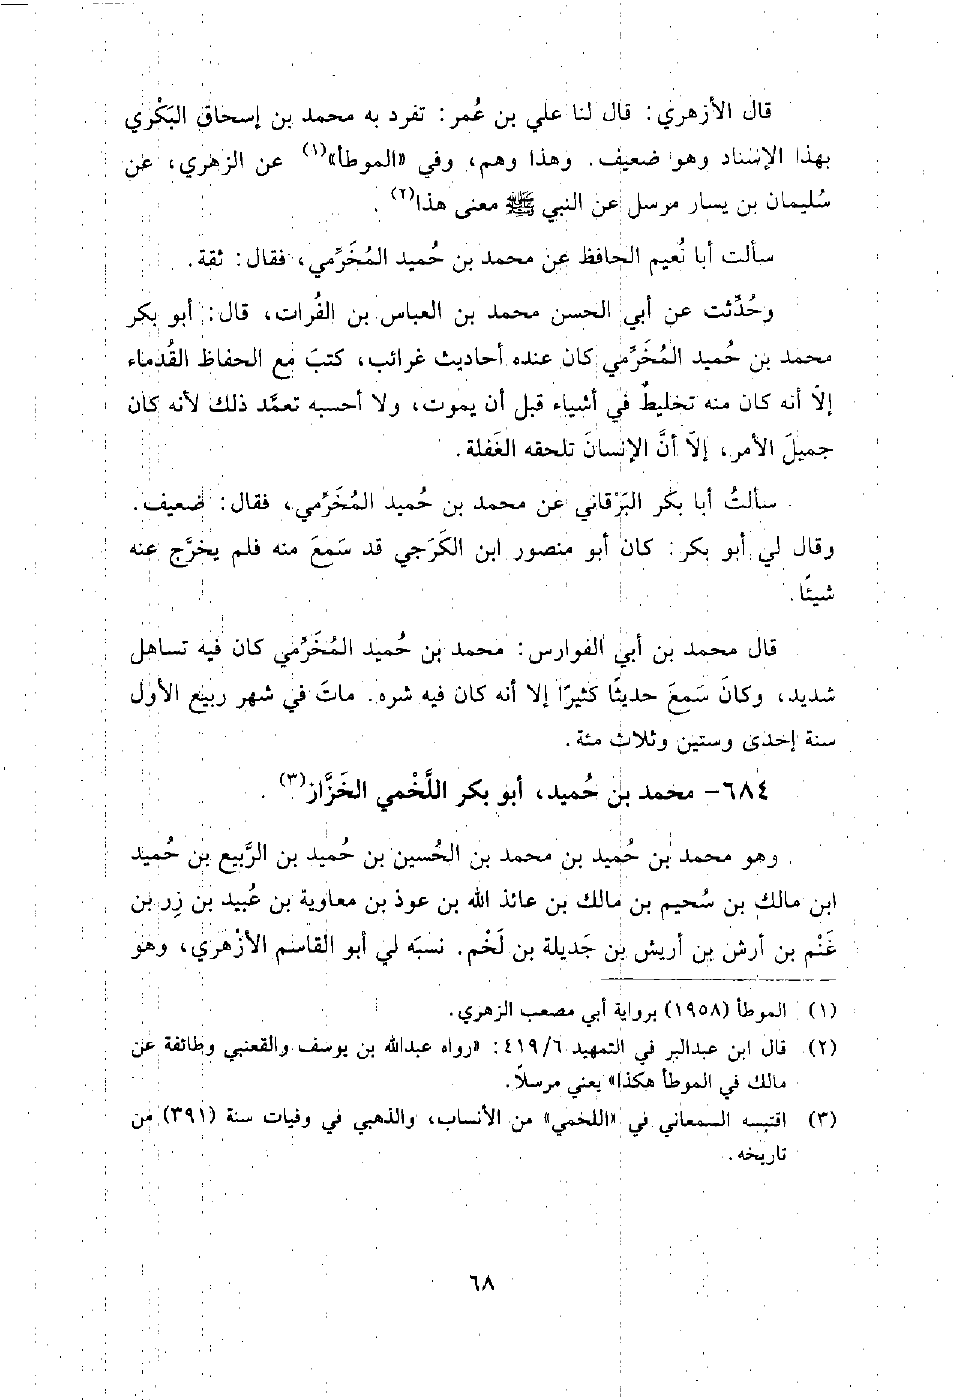 قال الأزهري: قال لنا علي بن عُمر: تفرد به محمد بن إسحاق البَكْري
بهذا الإسناد وهو ضعيف. وهذا وهم، وفي «الموطأ»(١) عن الزهري، عن
سُليمان بن يسار مرسل عن النبي ﷺ معنى هذا(٢).
سألت أبا نُعيم الحافظ عن محمد بن حُميد المُخَرِّمي، فقال: ثقة.
وحُدِّثت عن أبي الحسن محمد بن العباس بن الفُرات، قال: أبو بكر
محمد بن حُميد المُخَرِّمي كان عنده أحاديث غرائب، كتبَ مع الحفاظ القُدماء
إلّا أنه كان منه تخليطٌ في أشياء قبل أن يموت، ولا أحسبه تعمَّد ذلك لأنه كان
جميلَ الأمر، إلّا أنَّ الإنسانَ تلحقه الغَفلة.
سألتُ أبا بكر البَرْقاني عن محمد بن حُميد المُخَرِّمي، فقال: ضعيف.
وقال لي أبو بكر: كان أبو منصور ابن الكَرَجي قد سَمعَ منه فلم يخرَّج عنه
شيئًا.
قال محمد بن أبي الفوارس: محمد بن حُميد المُخَرِّمي كان فيه تساهل
شديد، وكانَ سَمعَ حديثًا كثيرًا إلا أنه كان فيه شره. ماتَ في شهر ربيع الأول
سنة إحدى وستين وثلاث مئة.
٦٨٤- محمد بن حُميد، أبو بكر اللَّخْمي الخَزَّاز(٣).
وهو محمد بن حُميد بن محمد بن الحُسين بن حُميد بن الرَّبيع بن حُميد
ابن مالك بن سُحيم بن مالك بن عائذ الله بن عوذ بن معاوية بن عُبيد بن زِر بن
غَنْم بن أرش بن أريش بن جَديلة بن لَخْم. نسبَه لي أبو القاسم الأزْهري، وهو
(١) الموطأ (١٩٥٨) برواية أبي مصعب الزهري.
(٢) قال ابن عبدالبر في التمهيد ٤١٩/٦: «رواه عبدالله بن يوسف والقعنبي وطائفة عن
مالك في الموطأ هكذا» يعني مرسلاً.
(٣) اقتبسه السمعاني في «اللخمي» من الأنساب، والذهبي في وفيات سنة (٣٩١) من
تاريخه.
٦٨